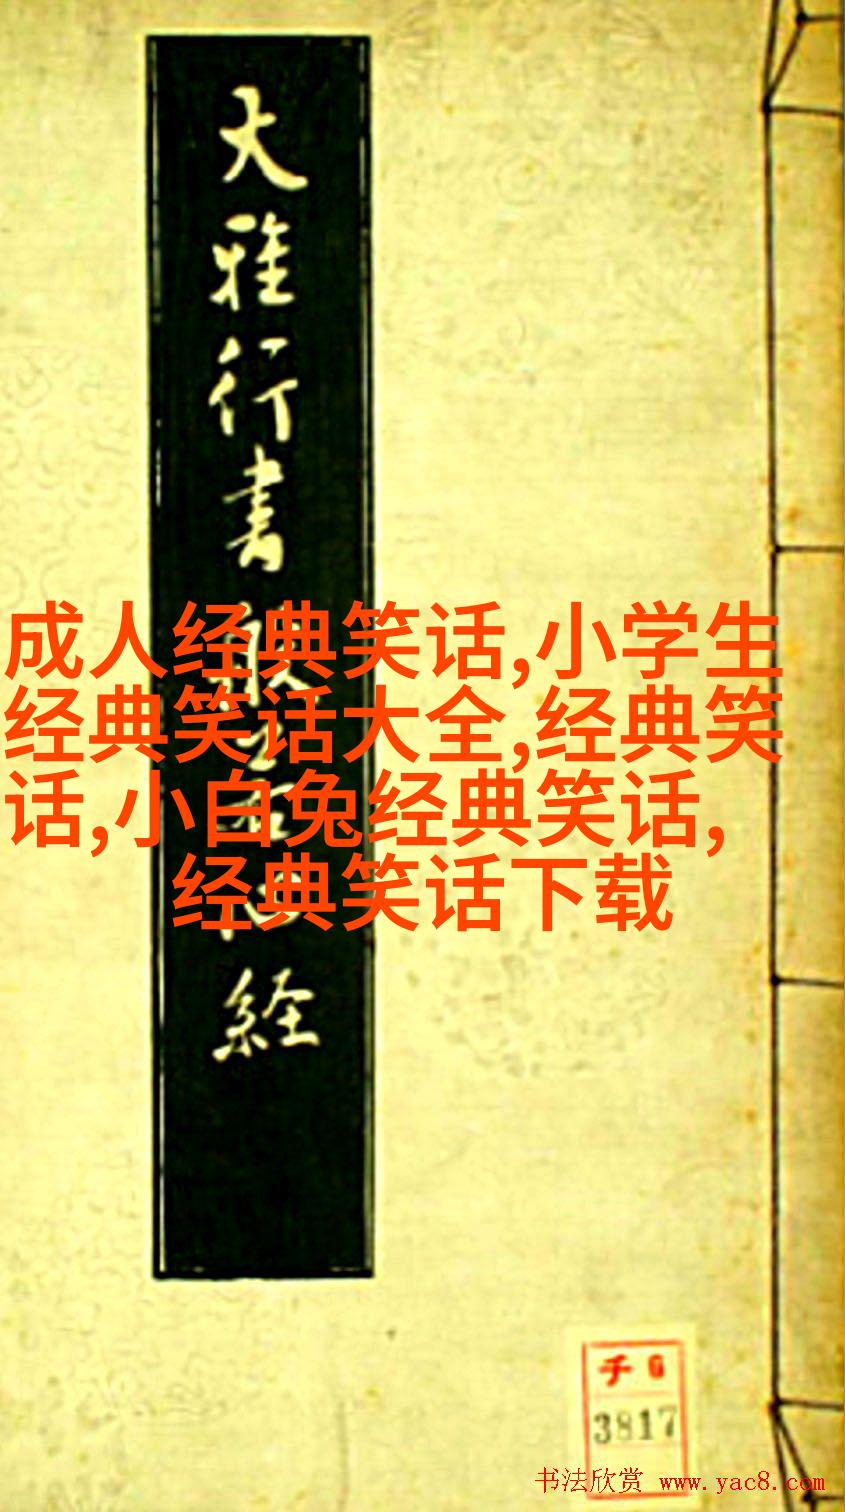 大雅行書般若心経
成人经典笑话,小学生
经典笑话大全,经典笑
话,小白兔经典笑话,
经典笑话下载
千 G
3817
书法欣赏 www.yac8.com